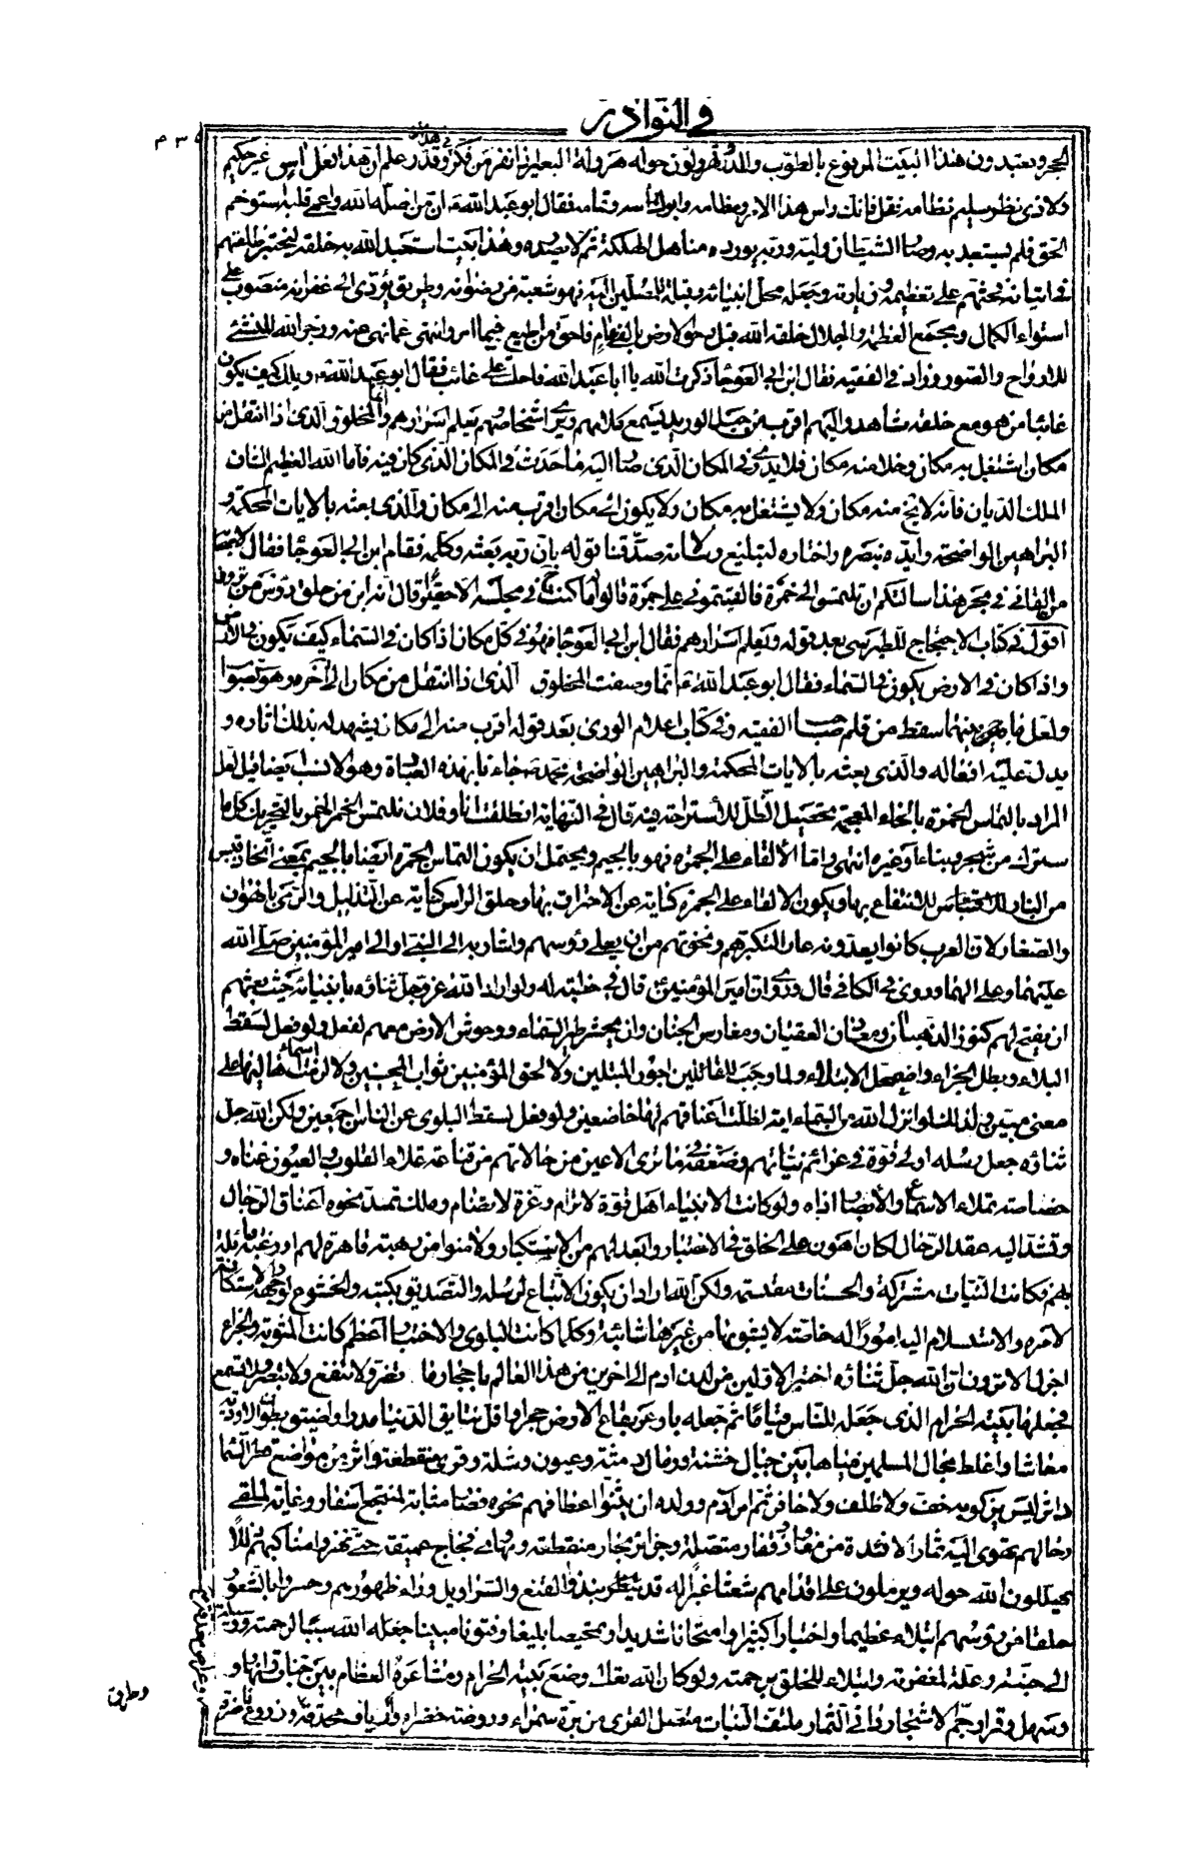 في النوادر
٣٥٢
الحجر وتعبدون هذا البيت المرفوع بالطوب والمدر وتهرولون حوله هرولة البعير اذا نفر من فكر في هذا وقدر علم ان هذا فعل اسسه غير حكيم
ولا ذي نظر سليم فقل فانك راس هذا الامر وسنامه وابوك اسه ونظامه فقال ابو عبد الله ع ان من اضله الله واعمى قلبه استوخم
الحق فلم يستعذ به وصار الشيطان وليه وربه يورده مناهل الهلكة ثم لا يصدره وهذا بيت استعبد الله به خلقه ليختبر طاعتهم
في اتيانه فحثهم على تعظيمه وزيارته وجعله محل انبيائه وقبلة للمصلين اليه فهو شعبة من رضوانه وطريق يؤدي الى غفرانه منصوب على
استواء الكمال ومجمع العظمة والجلال خلقه الله قبل دحو الارض بالفي عام فاحق من اطيع فيما امر وانتهى عما نهى عنه وزجر الله المنشئ
للارواح والصور وزاد في الفقيه فقال ابن ابي العوجا ذكرت الله يا ابا عبد الله فاحلت على غائب فقال ابو عبد الله ع ويلك كيف يكون
غائبا من هو مع خلقه شاهد واليهم اقرب من حبل الوريد يسمع كلامهم ويرى اشخاصهم يعلم اسرارهم وانما المخلوق الذي اذا انتقل من
مكان اشتغل به مكان وخلا منه مكان فلا يدري في المكان الذي صار اليه ما حدث في المكان الذي كان فيه فاما الله العظيم الشان
الملك الديان فانه لا يخلو منه مكان ولا يشتغل به مكان ولا يكون الى مكان اقرب منه الى مكان والذي بعثه بالايات المحكمة و
البراهين الواضحة وايده بنصره واختاره لتبليغ رسالاته صدقنا قوله بان ربه بعثه وكلمه فقام ابن ابي العوجا فقال لاصحابه
من القاني في بحر هذا سالتكم ان تلتمسوا لي خمرة فالقيتموني على جمرة قالوا ما كنت في مجلسه الا حقيرا قال انه ابن من حلق رؤس من ترون
اقول في كتاب الاحتجاج للطبرسي بعد قوله ويعلم اسرارهم فقال ابن ابي العوجا فهو في كل مكان اذا كان في السماء كيف يكون في الارض
واذا كان في الارض يكون في السماء فقال ابو عبد الله ع انما وصفت المخلوق الذي اذا انتقل من مكان الى اخره وهو صواب
ولعل ما بينهما سقط من قلم صاحب الفقيه وفي كتاب اعلام الورى بعد قوله اقرب منه الى مكان يشهد له بذلك اثاره و
يدل عليه افعاله والذي بعثه بالايات المحكمة والبراهين الواضحة محمد ص جاءنا بهذه العبادة وهو الانسب ايضا قيل لعل
المراد بالتماس الخمرة بالخاء المعجمة تحصيل الظل للاستراحة فيه قال في النهاية انطلقت انا وفلان نلتمس الخمر الخمر بالتحريك كل ما
سترك من شجر او بناء او غيره انتهى واما الالقاء على الجمرة فهو بالجيم ويحتمل ان يكون التماس الجمرة ايضا بالجيم بمعنى اتخاذ قبس
من النار للاقتباس للانتفاع بها ويكون الالقاء على الجمرة كناية عن الاحتراق بها وحلق الراس كناية عن التذليل والرمي بالهوان
والصغار لان العرب كانوا يعدونه عارا لتكبرهم ونخوتهم من ان يعلى رؤسهم واشار به الى النبي او الى امير المؤمنين صلى الله
عليهما وعلى الهما وروي في الكافي قال وروي ان امير المؤمنين ع قال في خطبة له ولو اراد الله عز وجل ثناؤه بانبيائه حيث بعثهم
ان يفتح لهم كنوز الذهبان ومعادن العقيان ومغارس الجنان وان يحشر طير السماء ووحوش الارض معهم لفعل ولو فعل لسقط
البلاء وبطل الجزاء واضمحل الابتلاء ولما وجب للقائلين اجور المبتلين ولا لحق المؤمنين ثواب المحسنين ولا لزمت الاسماء اهاليها على
معنى مبين ولذلك لو انزل الله من السماء اية لظلت اعناقهم لها خاضعين ولو فعل لسقط البلوى عن الناس اجمعين ولكن الله جل
ثناؤه جعل رسله اولي قوة في عزائم نياتهم وضعفة فيما ترى الاعين من حالاتهم من قناعة تملاء القلوب والعيون غناه و
خصاصة تملاء الاسماع والابصار اذاه ولو كانت الانبياء اهل قوة لا ترام وعزة لا تضام وملك تمد نحوه اعناق الرجال
وتشد اليه عقد الرحال لكان اهون على الخلق في الاختبار وابعد لهم من الاستكبار ولامنوا من رهبة قاهرة لهم او رغبة مائلة
بهم فكانت النيات مشتركة والحسنات مقتسمة ولكن الله اراد ان يكون الاتباع لرسله والتصديق بكتبه والخشوع لوجهه والاستكانة
لامره والاستسلام اليه امورا له خاصة لا يشوبها من غيرها شائبة وكلما كانت البلوى والاختبار اعظم كانت المثوبة والجزاء
اجزل الا ترون ان الله جل ثناؤه اختبر الاولين من لدن ادم الى اخرين من هذا العالم باحجار ما تضر ولا تنفع ولا تبصر ولا تسمع
فجعلها بيته الحرام الذي جعله للناس قياما ثم جعله باوعر بقاع الارض حجرا واقل نتايق الدنيا مدرا واضيق بطون الاودية
معاشا واغلظ محال المسلمين مياها بين جبال خشنة ورمال دمثة وعيون وشلة وقرى منقطعة واثر من مواضع قطر السماء
داثر ليس يزكو به خف ولا ظلف ولا حافر ثم امر ادم وولده ان يثنوا اعطافهم نحوه فصار مثابة لمنتجع اسفارهم وغاية لملقى
رحالهم تهوى اليه ثمار الافئدة من مفاوز قفار متصلة وجزائر بحار منقطعة ومهاوي فجاج عميقة حتى يهزوا مناكبهم ذللا
يهللون الله حوله ويرملون على اقدامهم شعثا غبرا له قد نبذوا القنع والسراويل وراء ظهورهم وحسروا بالشعور
حلقا عن رؤسهم ابتلاء عظيما واختبارا كبيرا وامتحانا شديدا وتمحيصا بليغا وفتونا مبينا جعله الله سببا لرحمته ووسيلة
الى جنته وعلة لمغفرته وابتلاء للخلق برحمته ولو كان الله تعالى وضع بيته الحرام ومشاعره العظام بين جنات وانهار و
سهل وقرار جم الاشجار داني الثمار ملتف النبات متصل القرى من برة سمراء وروضة خضراء وارياف محدقة وزروع ناضرة
وطرق